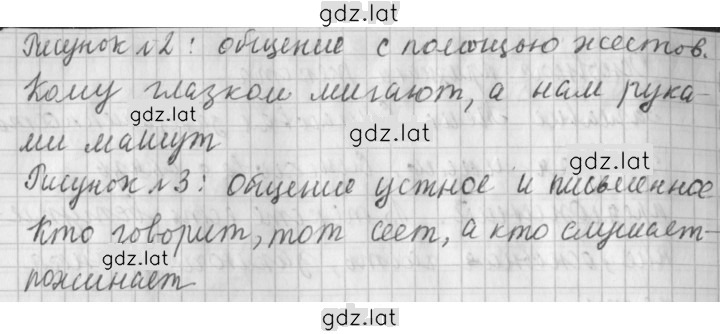 gdz.lat
Рисунок №2: общение с помощью жестов.
gdz.lat
Кому глазком мигают, а нам рука-
gdz.lat
ми машут
gdz.lat
gdz.lat
Рисунок №3: Общение устное и письменное
Кто говорит, тот сеет, а кто слушает-
gdz.lat
пожинает
gdz.lat